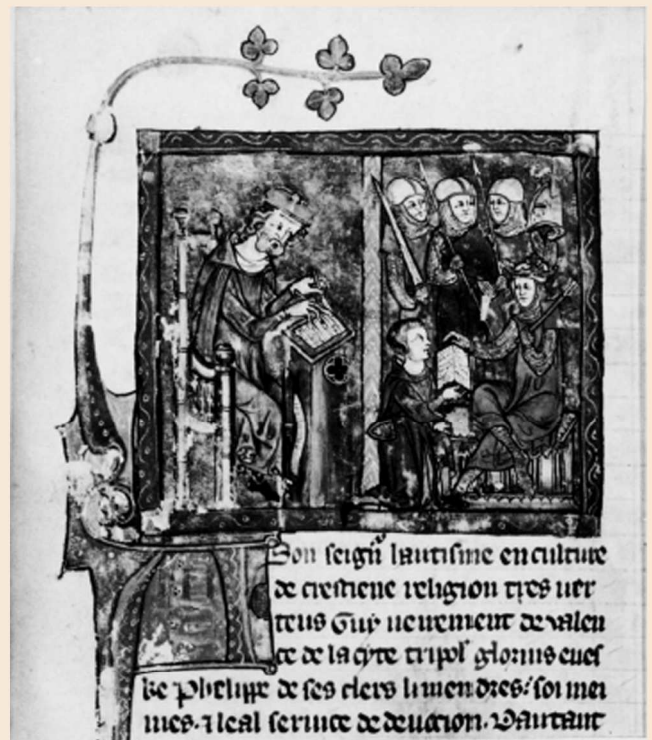 A Son seigñ hautisme en culture
de crestiene religion tres uer
teus Guy de valen
ce de la cyte tripol' glorius eues
ke Phelippe de ses clers li mendres: soi mei
mes. ⁊ leal seruice de deuocion. Dautant